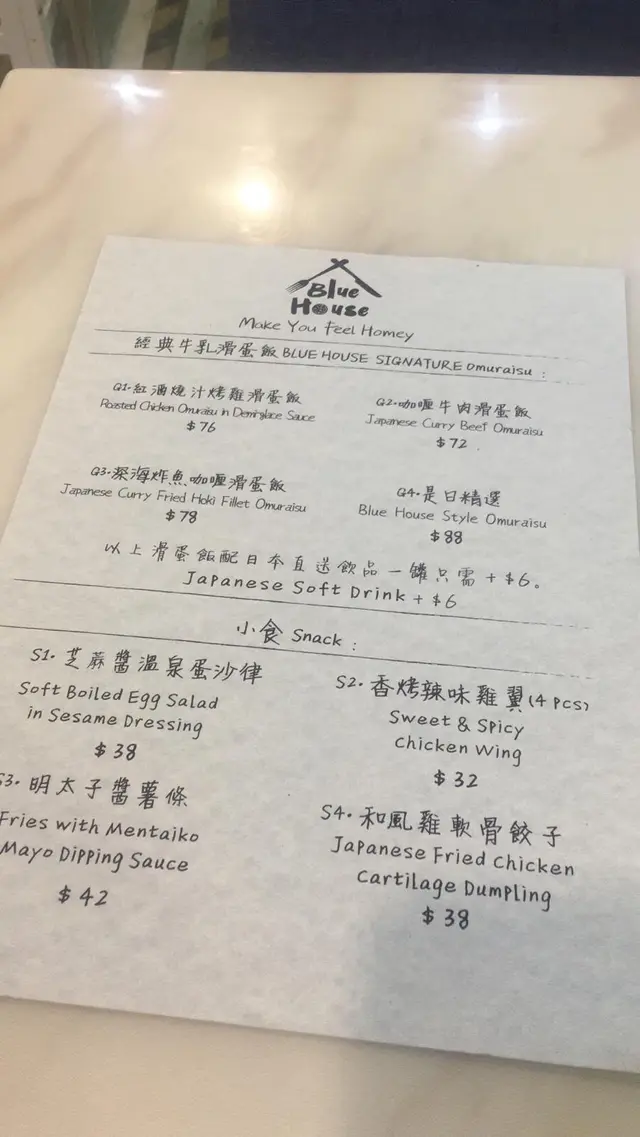 Blue
House
Make You Feel Homey
經典牛乳滑蛋飯 BLUE HOUSE SIGNATURE Omuraisu :
Q1.紅酒燒汁烤雞滑蛋飯
Roasted Chicken Omuraisu in Demiglace Sauce
$76
Q2.咖喱牛肉滑蛋飯
Japanese Curry Beef Omuraisu
$72
Q3.深海炸魚咖喱滑蛋飯
Japanese Curry Fried Hoki Fillet Omuraisu
$78
Q4.是日精選
Blue House Style Omuraisu
$88
以上滑蛋飯配日本直送飲品一罐只需+$6。
Japanese Soft Drink + $6
小食 Snack :
S1. 芝蔴醬溫泉蛋沙律
Soft Boiled Egg Salad
in Sesame Dressing
$38
S2. 香烤辣味雞翼(4 PCS)
Sweet & Spicy
Chicken Wing
$32
S3. 明太子醬薯條
Fries with Mentaiko
Mayo Dipping Sauce
$42
S4. 和風雞軟骨餃子
Japanese Fried Chicken
Cartilage Dumpling
$38